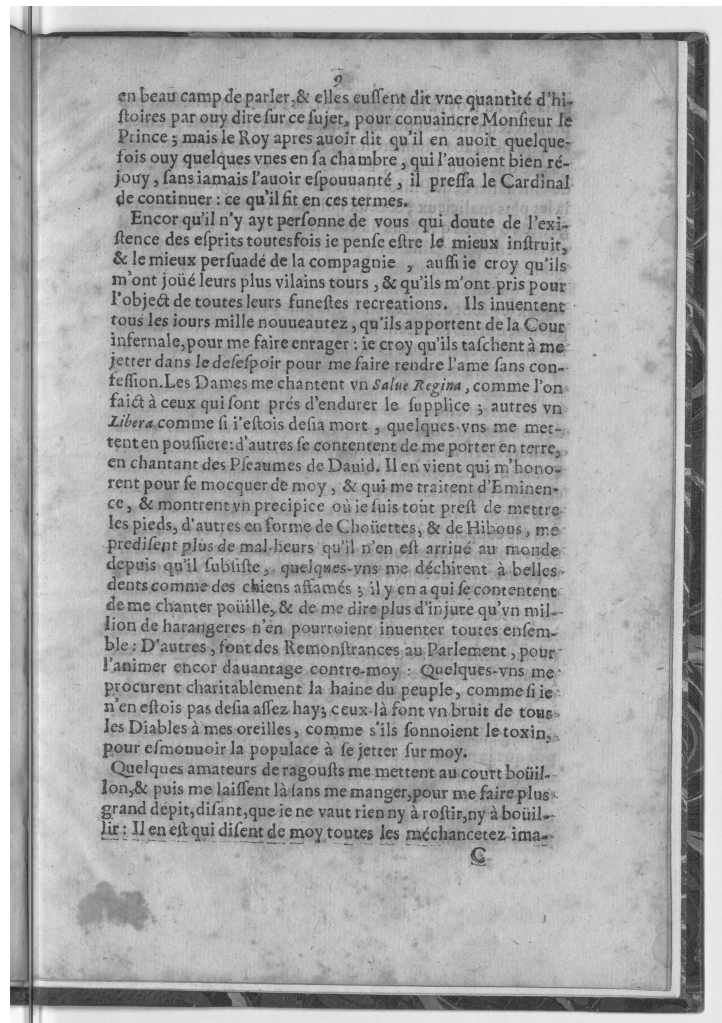 9
en beau camp de parler, & elles eussent dit vne quantité d'hi-
stoires par ouy dire sur ce sujet, pour conuaincre Monsieur le
Prince ; mais le Roy apres auoir dit qu'il en auoit quelque-
fois ouy quelques vnes en sa chambre, qui l'auoient bien ré-
jouy, sans iamais l'auoir espouuanté, il pressa le Cardinal
de continuer : ce qu'il fit en ces termes.
Encor qu'il n'y ayt personne de vous qui doute de l'exi-
stence des esprits toutesfois ie pense estre le mieux instruit,
& le mieux persuadé de la compagnie, aussi ie croy qu'ils
m'ont joüé leurs plus vilains tours, & qu'ils m'ont pris pour
l'object de toutes leurs funestes recreations. Ils inuentent
tous les iours mille nouueautez, qu'ils apportent de la Cour
infernale, pour me faire enrager : ie croy qu'ils taschent à me
jetter dans le desespoir pour me faire rendre l'ame sans con-
fession. Les Dames me chantent vn Salue Regina, comme l'on
faict à ceux qui sont prés d'endurer le supplice ; autres vn
Libera comme si i'estois desia mort, quelques-vns me met-
tent en poussiere : d'autres se contentent de me porter en terre,
en chantant des Pseaumes de Dauid. Il en vient qui m'hono-
rent pour se mocquer de moy, & qui me traitent d'Eminen-
ce, & montrent vn precipice où ie suis tout prest de mettre
les pieds, d'autres en forme de Choüettes, & de Hibous, me
predisent plus de mal-heurs qu'il n'en est arriué au monde
depuis qu'il subsiste, quelques-vns me déchirent à belles
dents comme des chiens affamés ; il y en a qui se contentent
de me chanter poüille, & de me dire plus d'injure qu'vn mil-
lion de harangeres n'en pourroient inuenter toutes ensem-
ble : D'autres, font des Remonstrances au Parlement, pour
l'animer encor dauantage contre-moy : Quelques-vns me
procurent charitablement la haine du peuple, comme si ie
n'en estois pas desia assez hay ; ceux-là font vn bruit de tous
les Diables à mes oreilles, comme s'ils sonnoient le toxin,
pour esmouuoir la populace à se jetter sur moy.
Quelques amateurs de ragousts me mettent au court boüil-
lon, & puis me laissent là sans me manger, pour me faire plus
grand dépit, disant, que ie ne vaut rien ny à rostir, ny à boüil-
lir : Il en est qui disent de moy toutes les méchancetez ima-
C